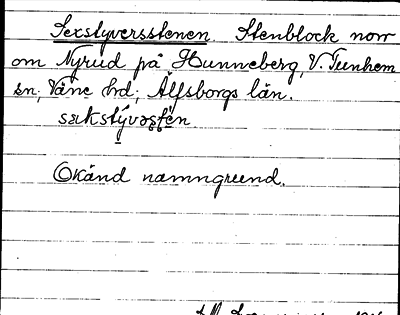 Sexstyversstenen. Stenblock norr
om Nyrud på Hunneberg, V. Tunhem
sn; Väne hd; Älfsborgs län.
Okänd namngrund.